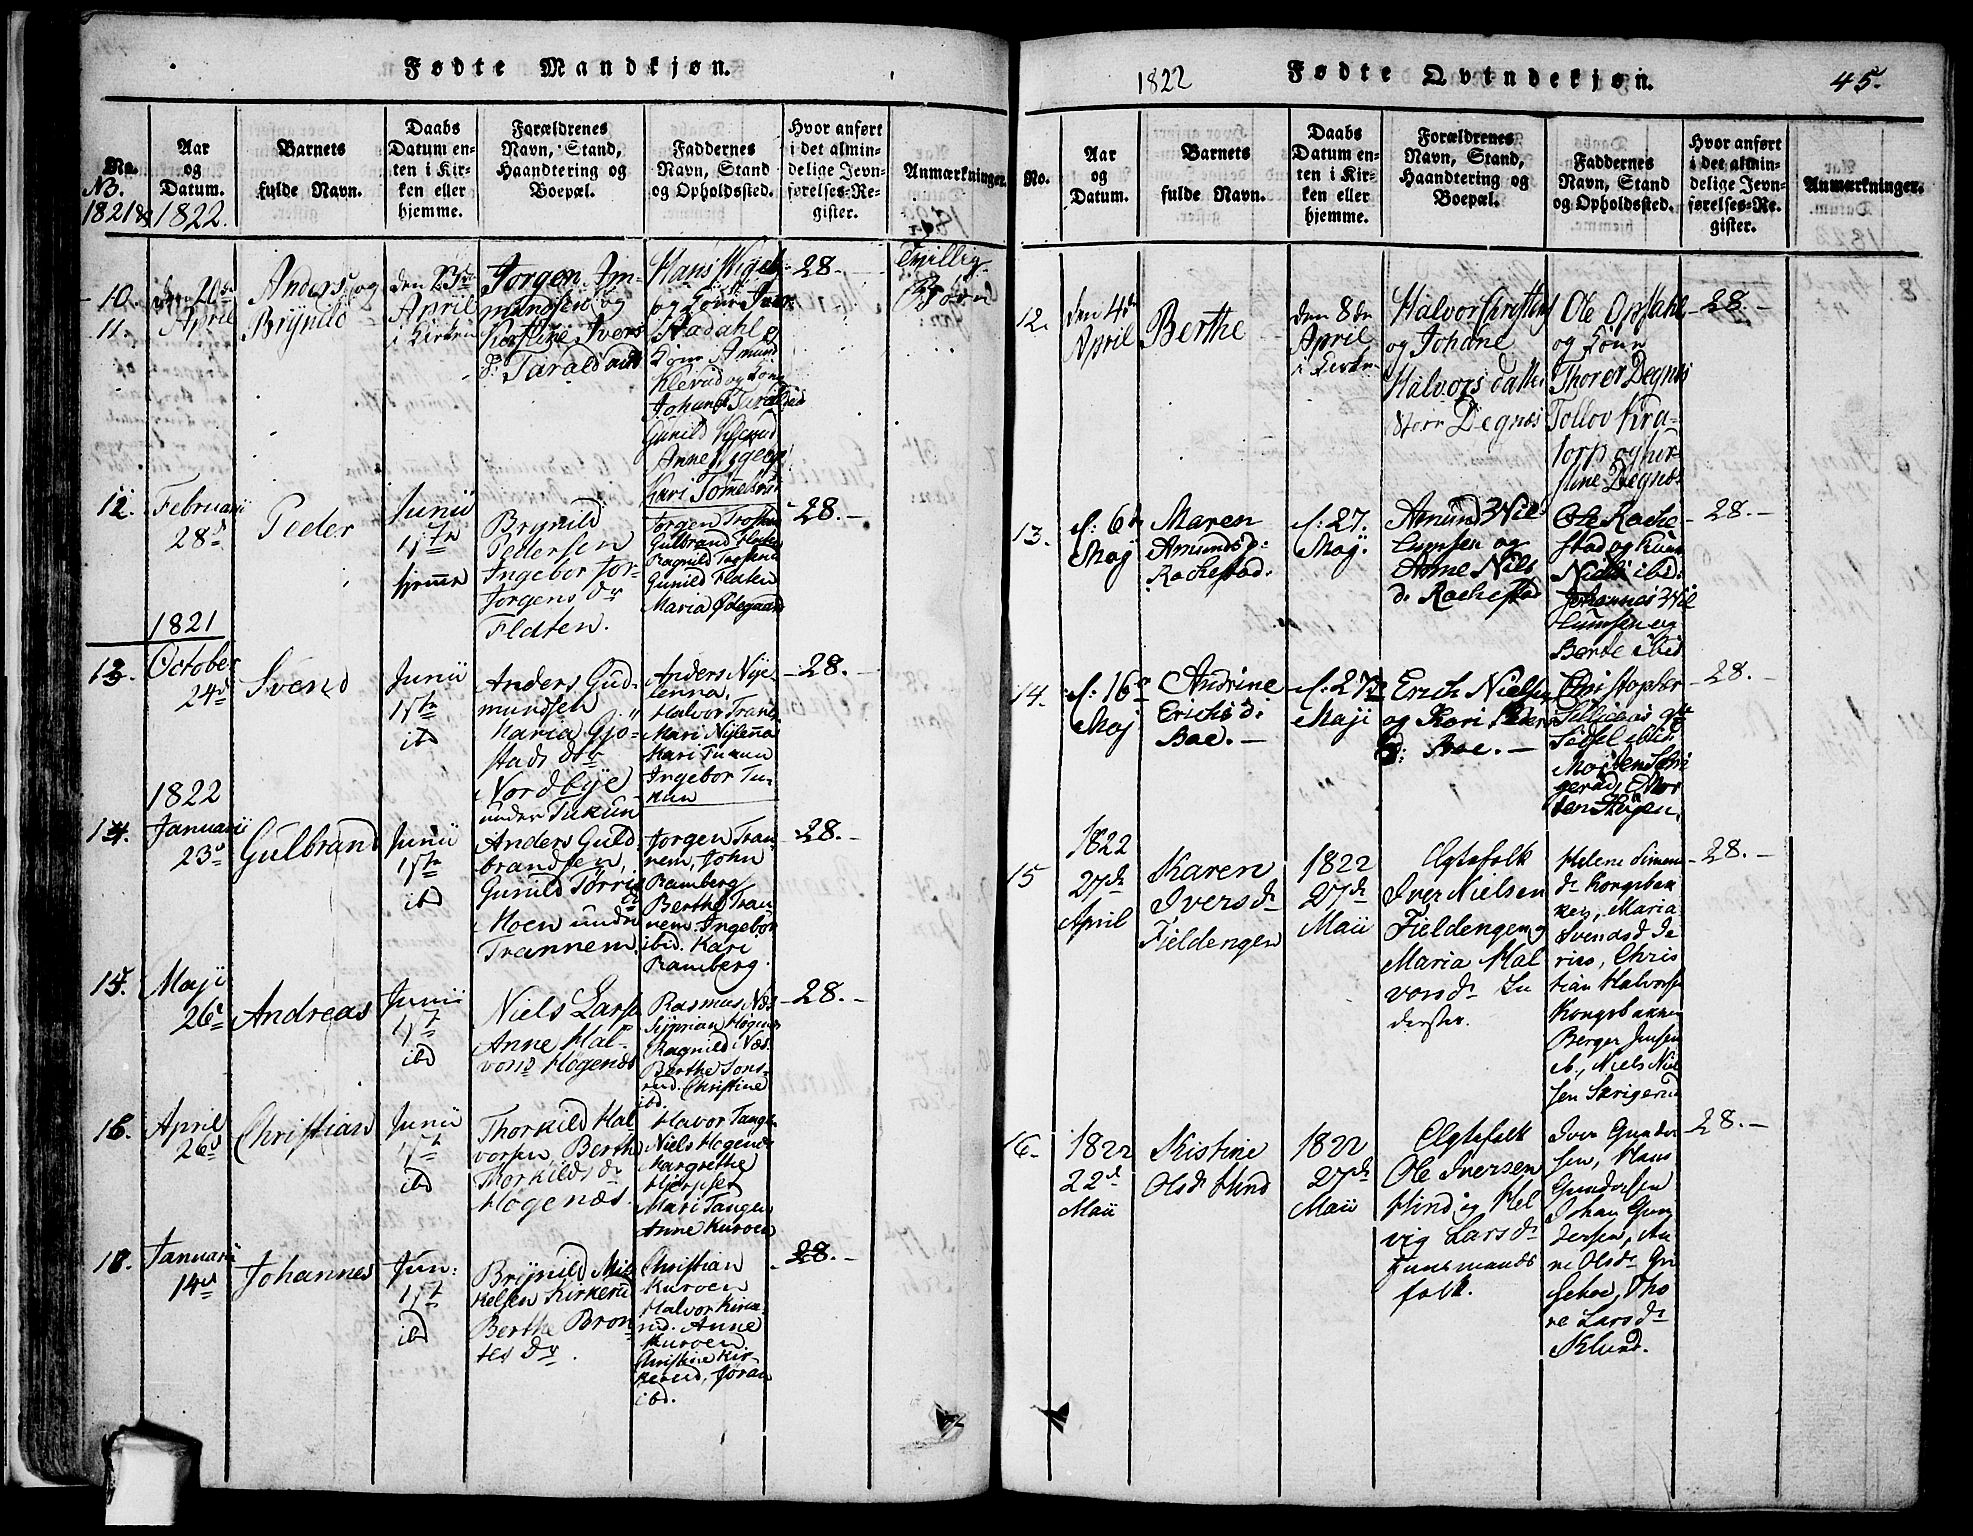 Fødte Mandkjøn.
No.
Aar
og
Datum.
Barnets
fulde Navn.
Daabs
Datum en-
ten i Kir-
ken eller
hjemme.
Forældrenes
Navn, Stand,
Haandtering og
Boepæl.
Faddernes
Navn, Stand
og Opholdssted.
Hvor anført
i det almin-
delige Jevn-
førelses-Re-
gister.
Anmærkninger.
NB.
1821 &
1822.
10.
11.
den 20de
April
Anders og
Brynild
den 25de
April
i Kirken
Jorgen Am-
mundsen og
Kirstine Ivers
d: Taralds
Hans Vigeb
og Kone Iver
Stadahl og
Kone Amund
Klevud og Kone
Johannes
Gunild Klevud
Anne Vigeb
Kari
28.
Tvillig-
Børn
12.
Februarii
28d
Peder
Junii
1ste
hjemme
Brynild
Pedersen
Ingebor Jor-
Jorgens dr
Flaten.
Jorgen
Gulbrand Flaten
Ragnild
Gunild Flaten
Maria Ødegaard
28.
1821
13.
October
24d
Svend
Junii
1ste
ibd
Anders Gud-
mundsen
Maria Gjo-
stads dr
Nordbye
under Tukun
Anders Nye-
lenna,
Halvor Trane
Mari Nylenna
Kari Tukun
Ingebor Tu-
kun
28.
1822
14.
Januarii
23d
Gulbrand
Junii
1ste
ibd
Anders Guld-
brandsen,
Gunild Torris
Moen under
Trannem.
Jorgen Tran-
nem, John
Ramberg
Berthe Tran-
nem. Ingebor
ibid. Kari
Ramberg.
28.
15.
Maji
26d
Andreas
Junii
1ste
ibd
Niels Lars
Anne Hal-
vors Høgenæs
Rasmus Næs
Syprian Høgenæs
Ragnild Næs.
Berthe Tons-
rud. Christine
ibd.
28.
16.
April
26d
Christian
Junii
1ste
ibd
Thorkild Hal
vorsen, Berthe
Thorkilds dr
Høgenæs.
Havor Tangen
Niels Høgenæs
Margrethe
Hjerpset
Mari Tangen
Anne Kuroen
28.
18.
Januarii
14d
Johannes
Jun:
1ste
ibd
Brynild Mik
kelsen Kirkerud
Berthe Bron-
tes dr.
Christian
Kuroen
Halvor Kirke-
rud. Anne
Kuroen
Christine Kir-
kerud, Joran
ibd.
28.
1822
Fødte Qvindekjøn.
45.
No.
Aar
og
Datum.
Barnets
fulde Navn.
Daabs
Datum en-
ten i Kir-
ken eller
hjemme.
Forældrenes
Navn, Stand,
Haandtering og
Boepæl.
Faddernes
Navn, Stand
og Opholdssted.
Hvor anført
i det almin-
delige Jevn-
førelses-Re-
gister.
Anmærkninger.
12.
den 4de
April
Berthe
den 8de
April
i Kirken
Halvor Christens
og Johane
Halvors datter
Store Degnæs
Ole Opstahl
og Kone
Thorer Degnæs
Tollov Kra-
torp og Kir-
stine Degnæs
28.
13.
d: 6te
Maj
Maren
Amunds d:
Rachestad.
d: 27.
Maj.
Amund Wil-
humsen og
Anne Niels
d: Rachestad
Ole Rache-
stad og Kone
Niels ibid.
Johannes Wil
humsen og
Berte ibid
28.
14.
d: 16de
Maj
Andrine
Erichs d:
Boe.
d: 27de
Maji
Erich Nielsen
og Kari Peders
d: Boe.
Christopher
Sidsel ibid.
Morten Skri
gerud, Mor
ten Skogen.
28.
15
1822
27de
April
Karen
Iversdr
Fieldengen
1822
27de
Maii
Ægtefolk
Iver Nielsen
Fieldengen og
Maria Hal
vorsdr In
derster.
Helene Simens
dr Kongsbak
ken, Maria
Svendsd. Je
rins, Chris
tian Halvorsen
Kongsbakken
Berger Jensen
ib., Niels Niel
sen Skrigerud
28.
16.
1822
22de
Maii
Kistine
Olsdr Hind
1822
27de
Maii
Ægtefolk
Ole Iversen
Hind og Hel
vig Larsdr
Huusmands
folk.
Iver Gunder
sen, Hans
Gundersen
Johan Gun
dersen, An
ne Olsdr Gu
seboe, Tho
re Larsdr
Klund.
28.